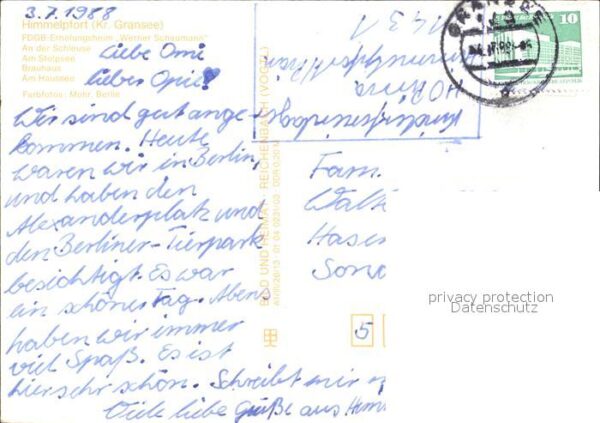 3.7.1988
Himmelpfort (Kr. Gransee)
FDGB-Erholungsheim „Werner Schaumann"
An der Schleuse
Am Stolpsee
Brauhaus
Am Haussee
Farbfotos: Mohr, Berlin
Liebe Omi
lieber Opi!
Wir sind gut ange-
kommen. Heute
waren wir in Berlin,
und haben den
Alexanderplatz und
den Berliner-Tierpark
besichtigt. Es war
ein schöner Tag. Abens
haben wir immer
viel Spaß. Es ist
hier sehr schön. Schreibt mir
Viele liebe Grüße aus Himm
BILD UND HEIMAT REICHENBACH (VOGTL)
1431
10
Fam.
Walt
Hase
Son
5
privacy protection
Datenschutz